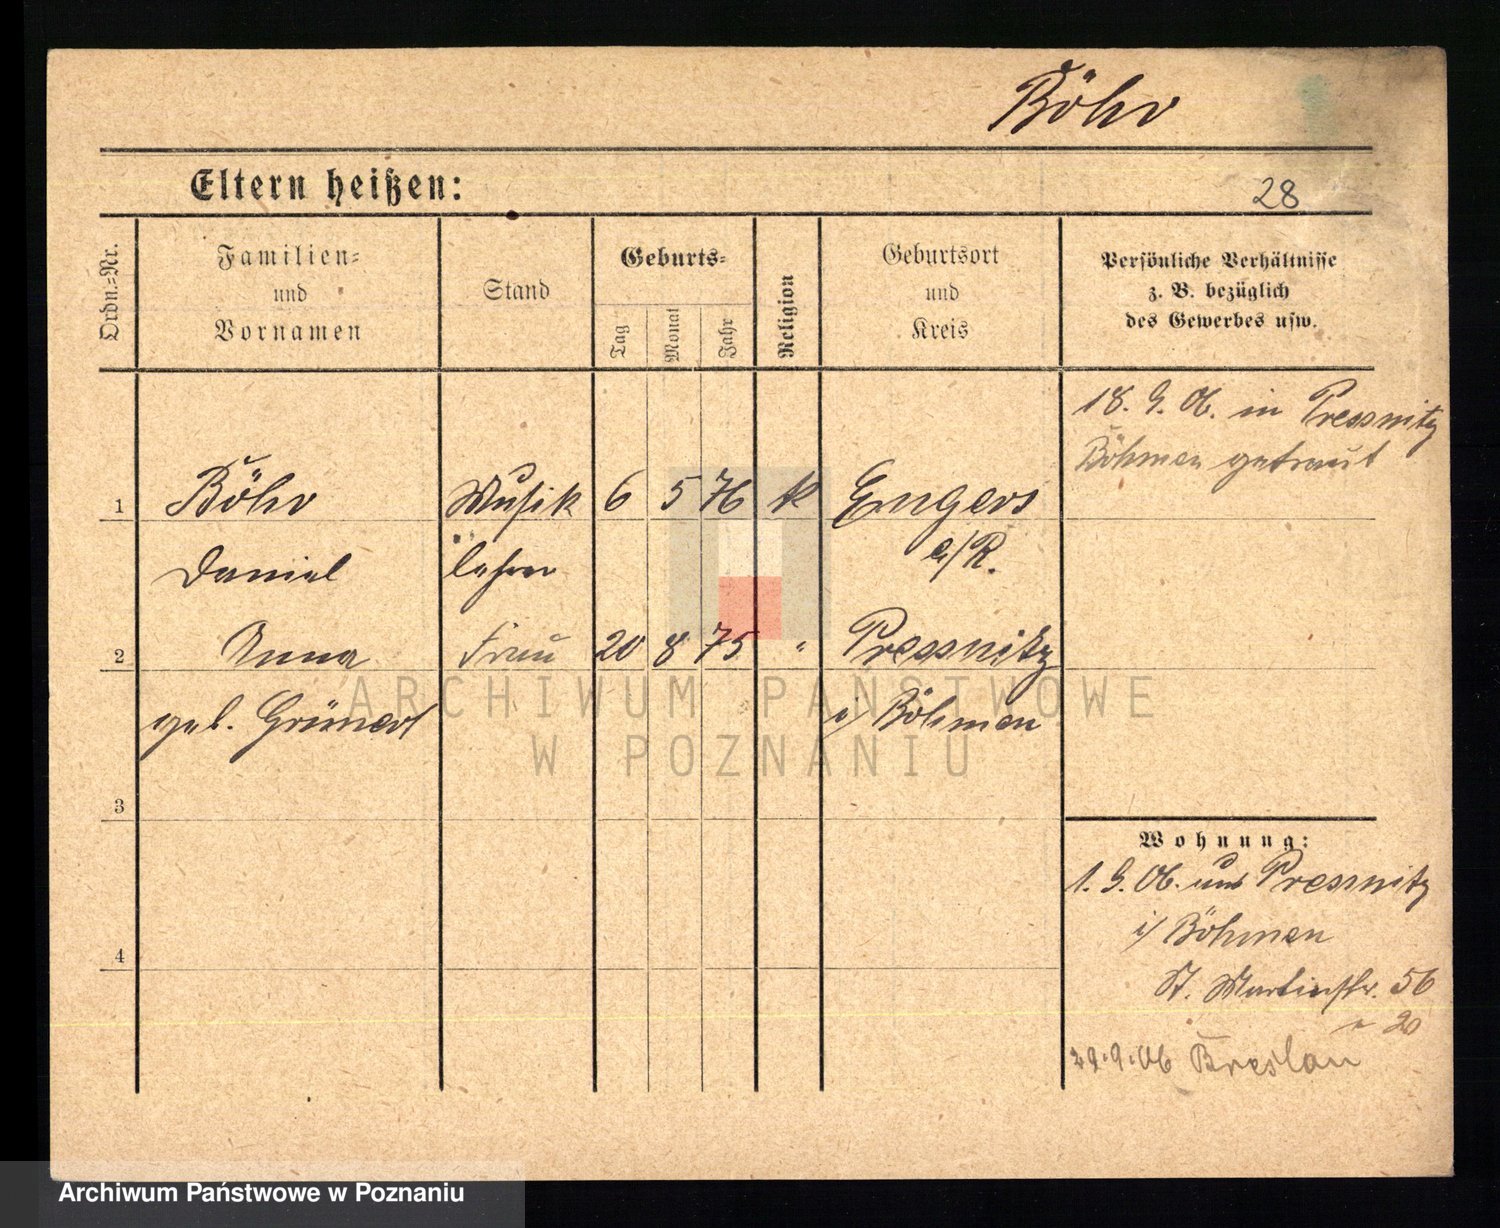 Böhr
Eltern heißen:
28
Ordn.-Nr.
Familien-
und
Vornamen
Stand
Geburts-
Tag
Monat
Jahr
Religion
Geburtsort
und
Kreis
Persönliche Verhältnisse
z. B. bezüglich
des Gewerbes usw.
18. 9. 06. in Pressnitz
Böhmen getraut
1 Böhr Musik 6 5 76 k Engers
Daniel lehrer a/R.
2 Anna Frau 20 8 75 " Pressnitz
geb. Grünert i/ Böhmen
ARCHIWUM PAŃSTWOWE
W POZNANIU
3
Wohnung:
1. 9. 06. aus Pressnitz
i/ Böhmen
4
St. Martinstr. 56
" 20
29.9.06 Breslau
Archiwum Państwowe w Poznaniu